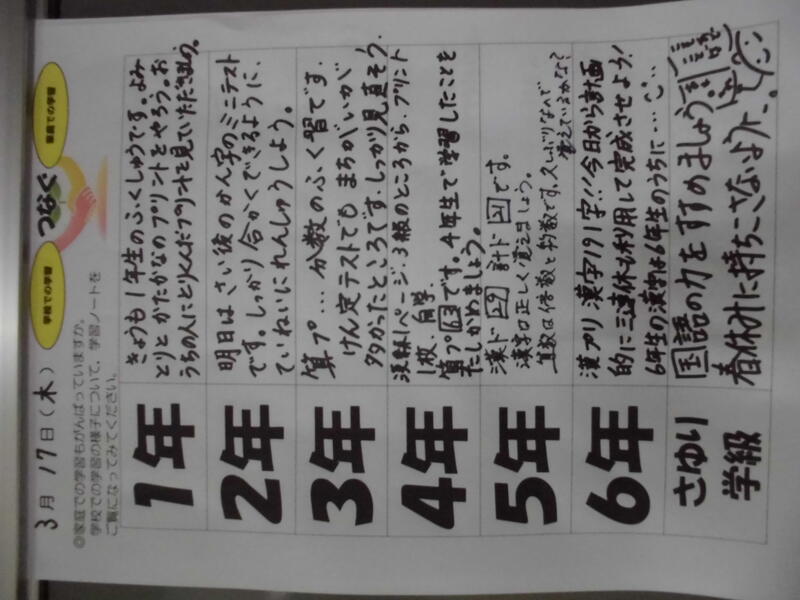 3月17日(木)
学校での学習
つなぐ
家庭での学習
◎家庭での学習もがんばっていますか。
学校での学習の様子について、学習ノートを
ご覧になってみてください。
1年
きょうも1年生のふくしゅうです。よみ
とりとかたかなのプリントをやろう。お
うちの人にとりくんだプリントを見ていただきましょう。
2年
明日はさい後のかん字のミニテスト
です。しっかり合かくできるように、
ていねいにれんしゅうしよう。
3年
算プ…分数のふく習です。
けん定テストでもまちがいが
多かったところです。しっかり見直そう。
4年
漢練1ページ、3級のところから、プリント
1枚、自学
算プ です。4年生で学習したことを
たしかめましょう。
5年
漢ド 計ド です。
漢字は正しく覚えましょう。
算数は倍数と約数です。久しぶりなので
覚えているかな?
6年
漢プリ 漢字191字!!今日から計画
的に三連休も利用して完成させよう!
6年生の漢字は6年生のうちに…
さゆり
学級
国語の力をすすめましょう
春休みに持ちこさないように。